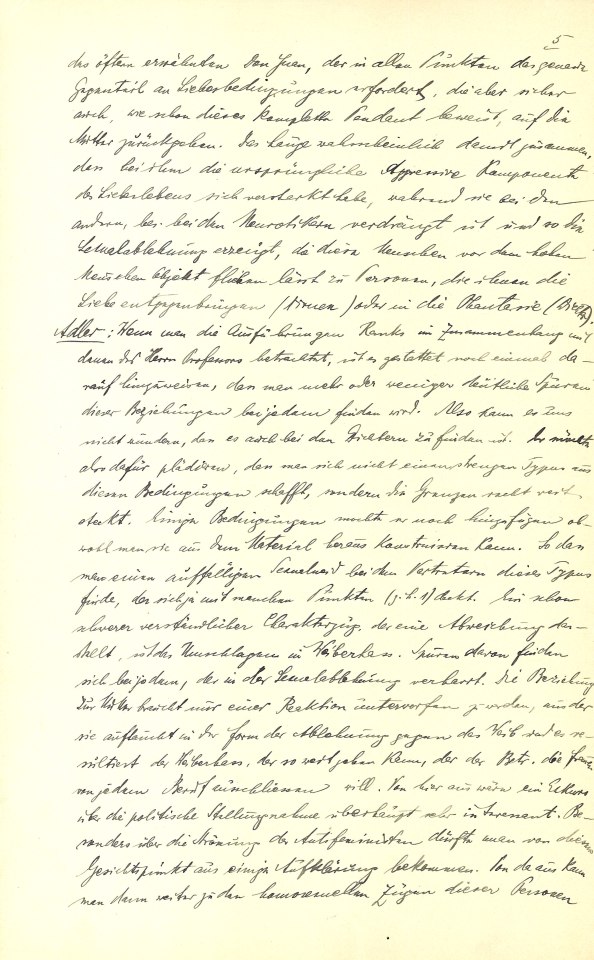 5
des öftern erwähnten Don Juan, der in allen Punkten das gerade
Gegenteil an Liebesbedingungen erfordert, die aber sicher
auch, wie schon dieses komplette Pendant beweist, auf die
Mutter zurückgehen. Das hänge wahrscheinlich damit zusammen,
dass bei ihm die ursprüngliche Aggressive Komponente
des Liebeslebens sich verstärkt habe, während sie bei den
andern, bes. bei den Neurotikern verdrängt ist und so die
Sexualablehnung erzeugt, die diese Menschen vor dem hohen
Menschen Objekt fliehen lässt zu Personen, die ihnen die
Liebe entgegenbringen (Dirnen) oder in die Phantasie (Dichter).
Adler: Wenn man die Ausführungen Ranks im Zusammenhang mit
denen des Herrn Professors betrachtet, ist es gestattet noch einmal da-
rauf hinzuweisen, dass man mehr oder weniger deutliche Spuren
dieser Beziehungen bei jedem finden wird. Also kann es uns
nicht wundern, dass es auch bei den Dichtern zu finden ist. Er möchte
also dafür plädiren, dass man sich nicht einen strengen Typus aus
diesen Bedingungen schafft, sondern die Grenzen recht weit
steckt. Einige Bedingungen möchte er noch hinzufügen ob-
wohl man sie aus dem Material heraus konstruieren kann. So dass
man einen auffälligen Sexualneid bei den Vertretern dieses Typus
finde, der sich ja mit manchen Punkten deckt. Ein schon
schwerer verständlicher Charakterzug, der eine Abweichung dar-
stellt, ist das Umschlagen in Weiberhass. Spuren davon finden
sich bei jedem, der in der Sexualablehnung verharrt. Die Beziehung
zur Mutter braucht nur einer Reaktion unterworfen zu werden, aus der
sie auftaucht in der Form der Ablehnung gegen das Weib und es re-
sultiert der Weiberhass, der so weit gehen kann, dass der Betr. die Frauen
von jedem Beruf ausschliessen will. Von hier aus wäre ein Exkurs
über die politische Stellungnahme überhaupt sehr interessant. Be-
sonders über die Strömung der Antifeministen dürfte man von diesem
Gesichtspunkt aus einige Aufklärung bekommen. Von da aus kann
man dann weiter zu den homosexuellen Zügen dieser Personen